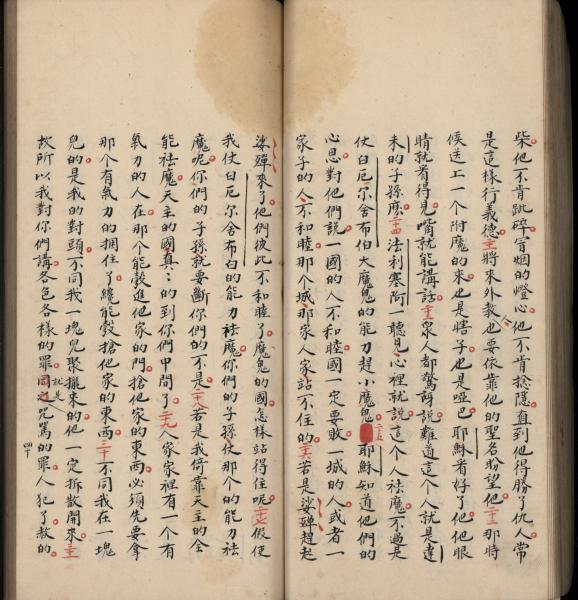 柴他不肯跐碎冒烟的燈心他不肯捻隱直到他得勝了仇人常
是這樣行義德二十一將來外教人也要依靠他的聖名盼望他二十二那時
候送上一个附魔的來也是瞎子也是啞巴耶穌看好了他他眼
睛就看得見嘴就能講話二十三衆人都驚訝說難道這个人就是達
未的子孫麽二十四法利塞阿一聽見心裡就說這个人祛魔不過是
仗白尼尔舍布伯大魔鬼的能力趕小魔鬼二十五耶穌知道他們的
心思對他們說一國的人不和睦國一定要敗一城的人或者一
家子的人不和睦那个城那家人家站不住的二十六若是娑殫趕起
娑殫來了他們彼此不和睦了魔鬼的國怎樣站得住呢二十七假使
我仗白尼尔舍布白的能力祛魔你們的子孫仗那个的能力祛
魔呢你們的子孫就要斷你們的不是二十八若是我倚靠天主的全
能祛魔天主的國真〻的到你們中間了二十九人家家裡有一个有
氣力的人在那个能彀進他家的門搶他家的東西必須先要拿
那个有氣力的捆住了纔能彀搶他家的東西三十不同我在一塊
兒的是我的對頭不同我一塊兒聚攏來的他一定拆散開來三十一
故所以我對你們講各色各樣的罪就是咒罵的罪人犯了赦的
四十